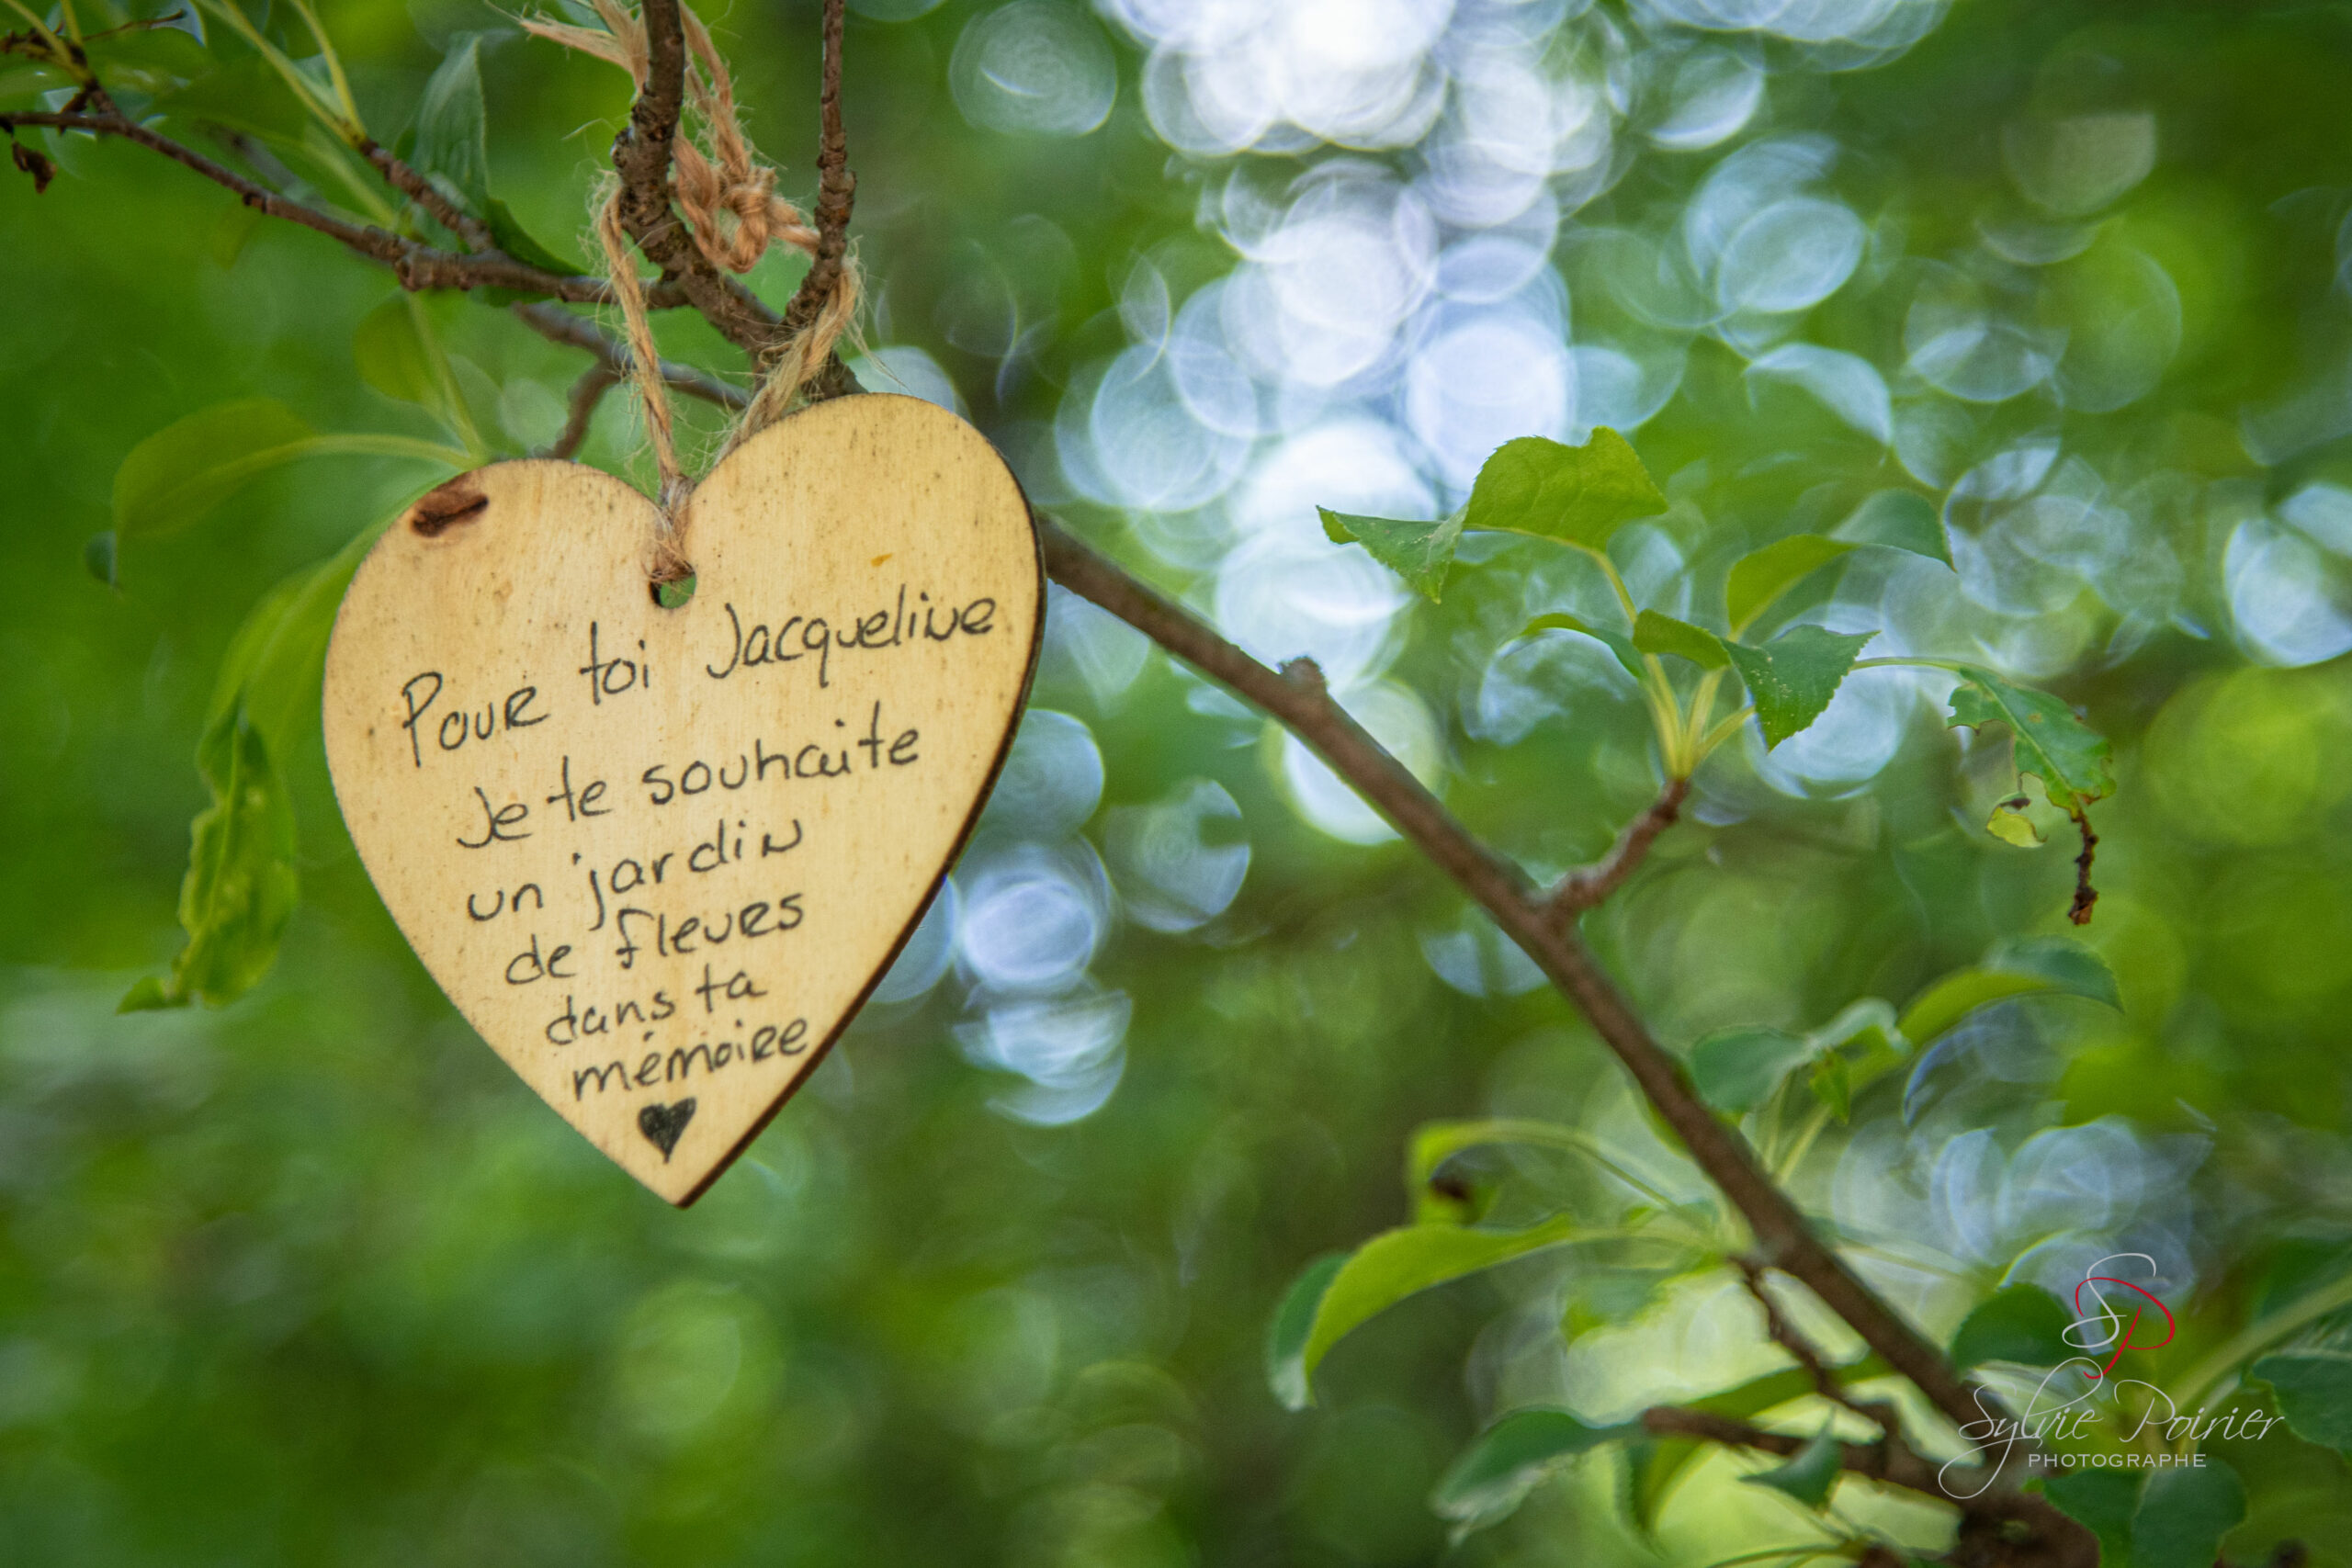 Pour toi Jacqueline
Je te souhaite
un jardin
de fleurs
dans ta
mémoire
SP
Sylvie Poirier
PHOTOGRAPHE